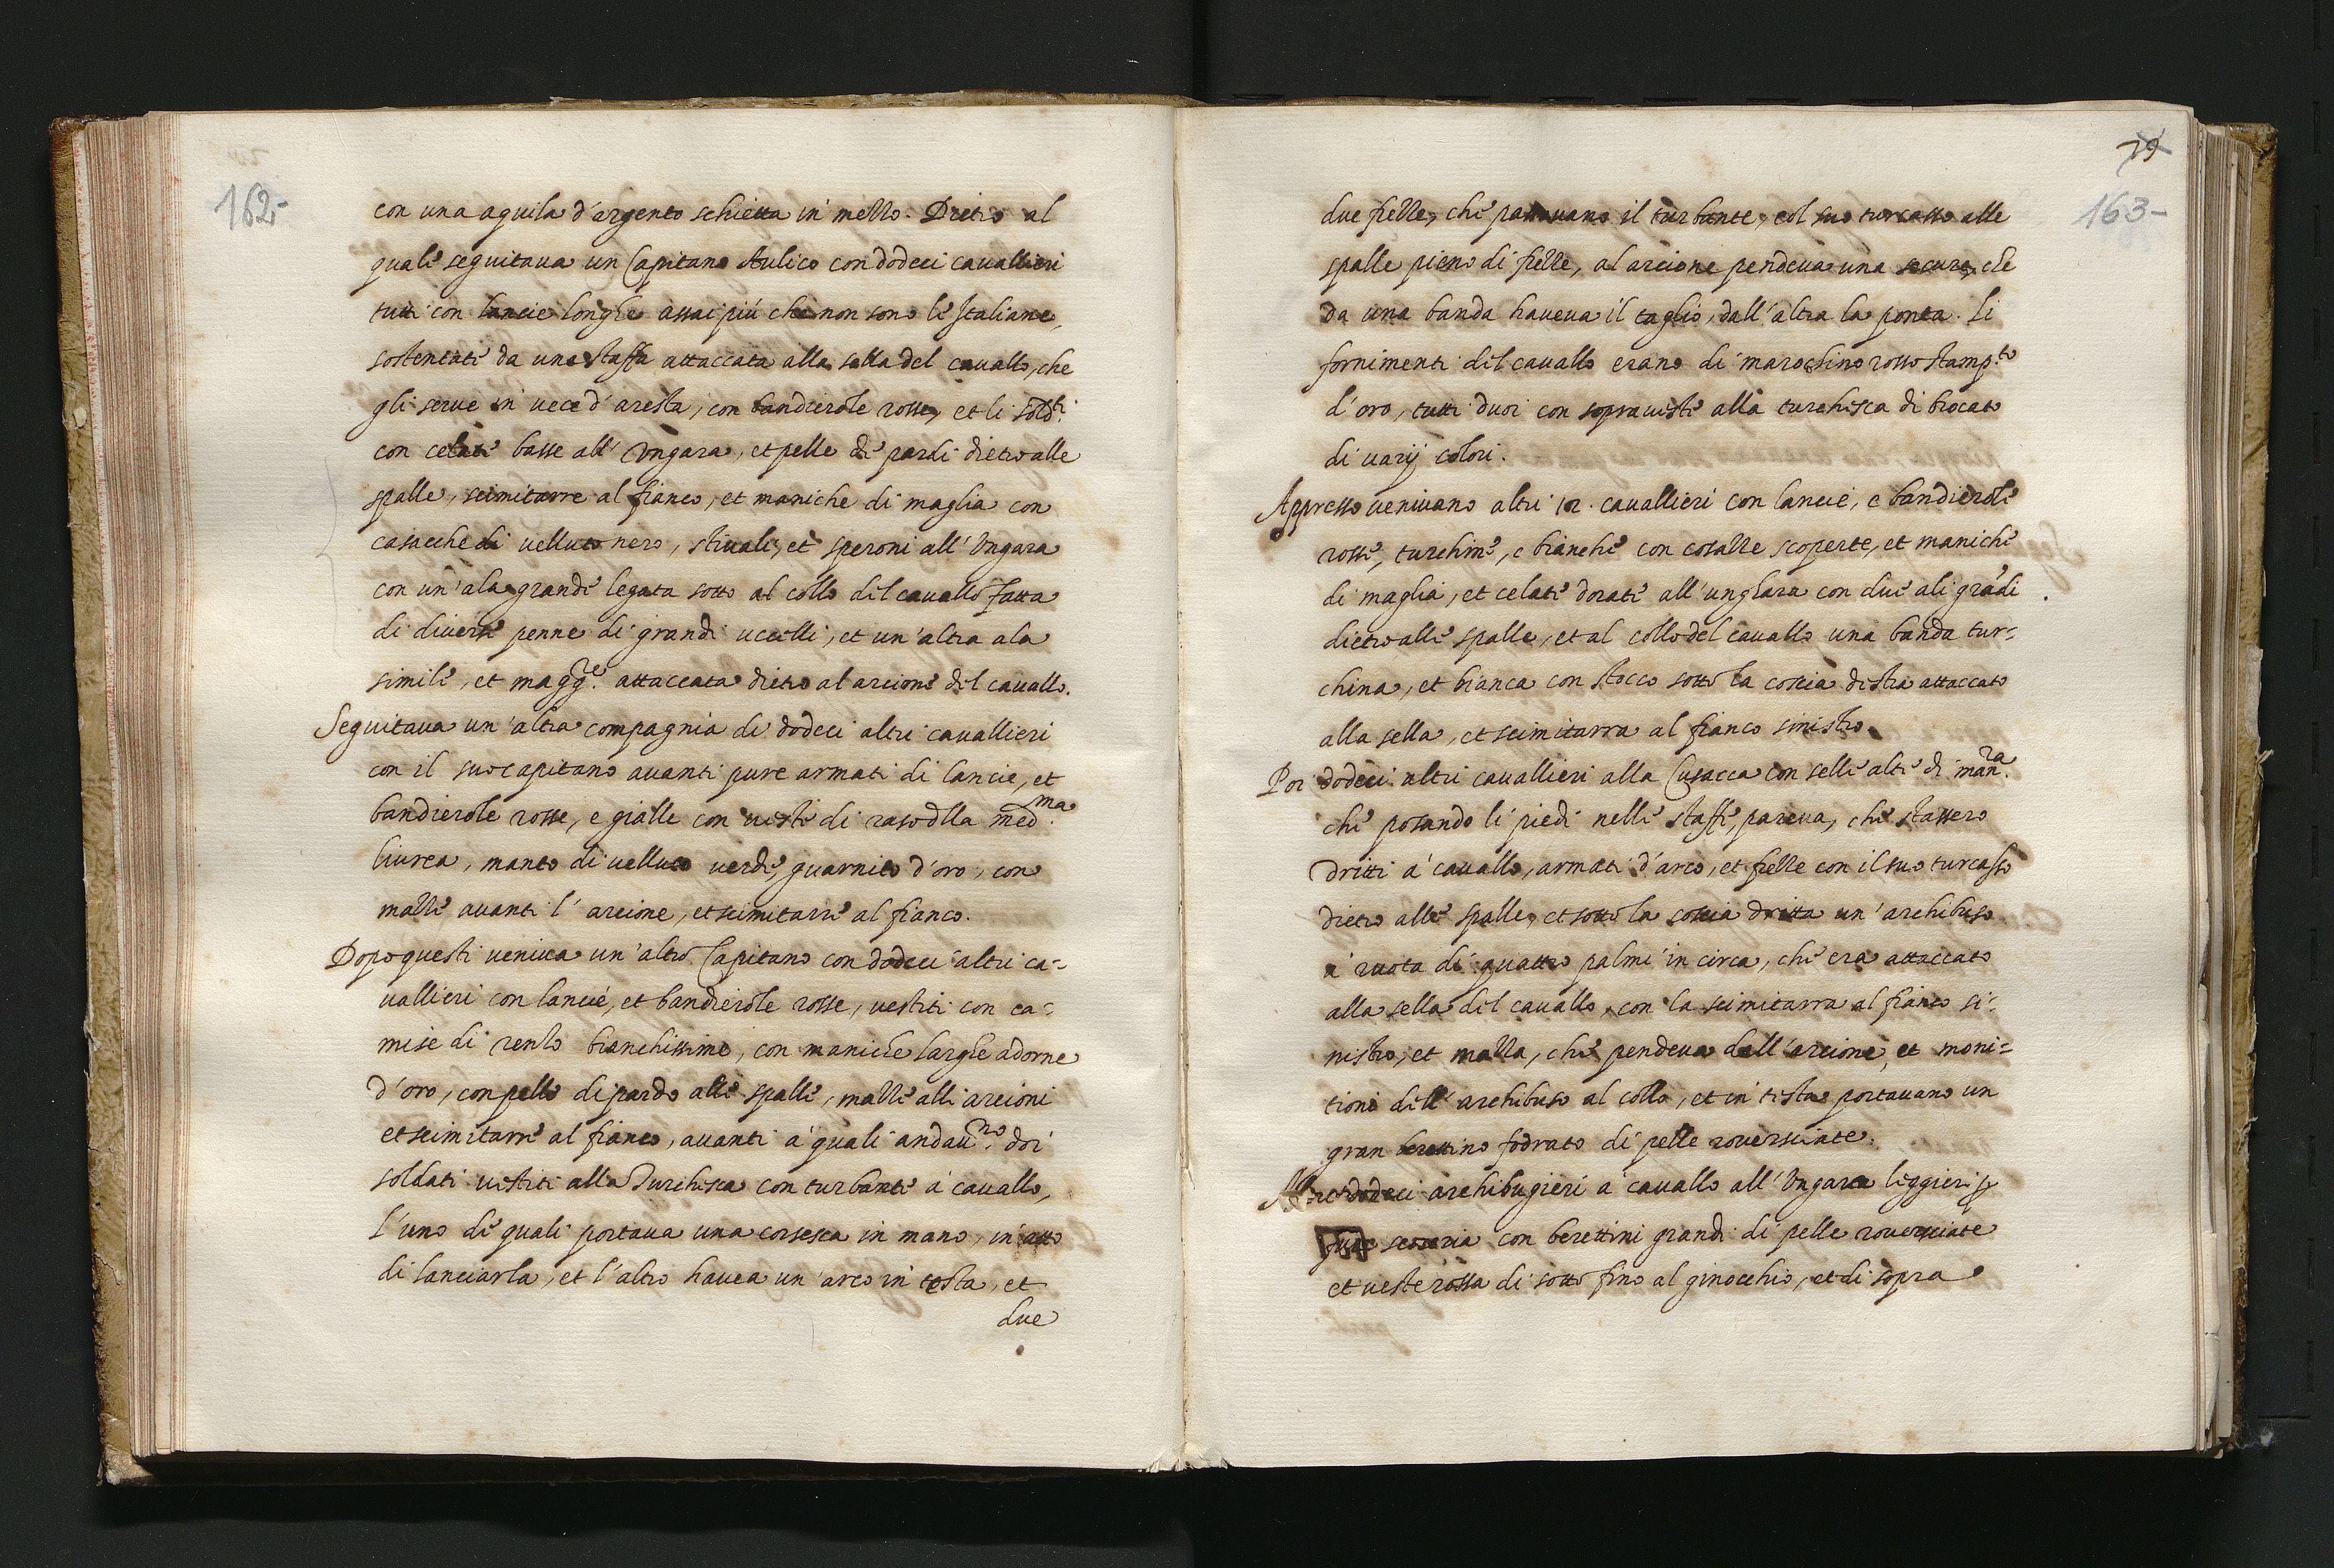 162-
con una aquila d'argento schietta in mezzo. Dietro al
quale seguitaua un Capitano Aulico con dodeci cauallieri
tutti con lancie longhe assai più che non sono le Italiane,
sostentate da una staffa attaccata alla sella del cauallo, che
gli serue in uece d'aresta, con bandierole rosse, et li sold.ti
con celate basse all'Ungara, et pelle di pardi dietro alle
spalle, scimitarre al fianco, et maniche di maglia con
casacche di uelluto nero, stiuali, et speroni all'Ungara
con un'ala grande legata sotto al collo del cauallo fatta
di diuerse penne di grandi uccelli, et un'altra ala
simile, et magg.re attaccata dietro al arcione del cauallo.
Seguitaua un'altra compagnia di dodeci altri cauallieri
con il suo capitano auanti pure armati di lancie, et
bandierole rosse, e gialle con ueste di raso dlla med.ma
liurea, manto di uelluto uerde, guarnito d'oro, con
mazze auanti l'arcione, et scimitarre al fianco.
Dopo questi veniua un'altro Capitano con dodeci altri ca-
uallieri con lancie, et bandierole rosse, uestiti con ca-
mise di renso bianchissime, con maniche larghe adorne
d'oro, con pelle di pardo alle spalle, mazze alli arcioni
et scimitarre al fianco, auanti a quali andau.no doi
soldati uestiti alla Turchesca con turbante à cauallo,
l'uno de quali portaua una corsesca in mano, in atto
di lanciarla, et l'altro hauea un'arco in testa, et
due
79
163-
due frezze, che passauano il turbante, col suo turcasso alle
spalle pieno di frezze, al arcione pendeua una secure, che
da una banda haueua il taglio, dall'altra la ponta. Li
fornimenti del cauallo erano di marochino rosso stamp.to
d'oro, tutti duoi con soprauiste alla turchesca di brocato
di varij colori.
Appresso ueniuano altri 12. cauallieri con lancie, e bandierole
rosse, turchine, e bianche con corazze scoperte, et maniche
di maglia, et celate dorate all'unghara con due ali grādi
dietro alle spalle, et al collo del cauallo una banda tur-
china, et bianca con stocco sotto la coscia destra attaccato
alla sella, et scimitarra al fianco sinistro.
Poi dodeci altri cauallieri alla Cusacca con selle alte di man.ra
che posando li piedi nelle staffe, pareua, che stassero
dritti à cauallo, armati d'arco, et frezze con il suo turcasso
dietro alle spalle, et sotto la coscia dritta un'archibuso
à ruota di quattro palmi in circa, che era attaccato
alla sella del cauallo, con la scimitarra al fianco si-
nistro, et mazza, che pendeua dall'arcione, et moni-
tione dell'archibuso al collo, et in testa portauano un
gran berettino fodrato di pelle rouersciate.
Altre dodeci archibugieri à cauallo all'Ungara leggieri
con berettini grandi di pelle rouersciate
et ueste rossa di sotto fino al ginocchio, et di sopra